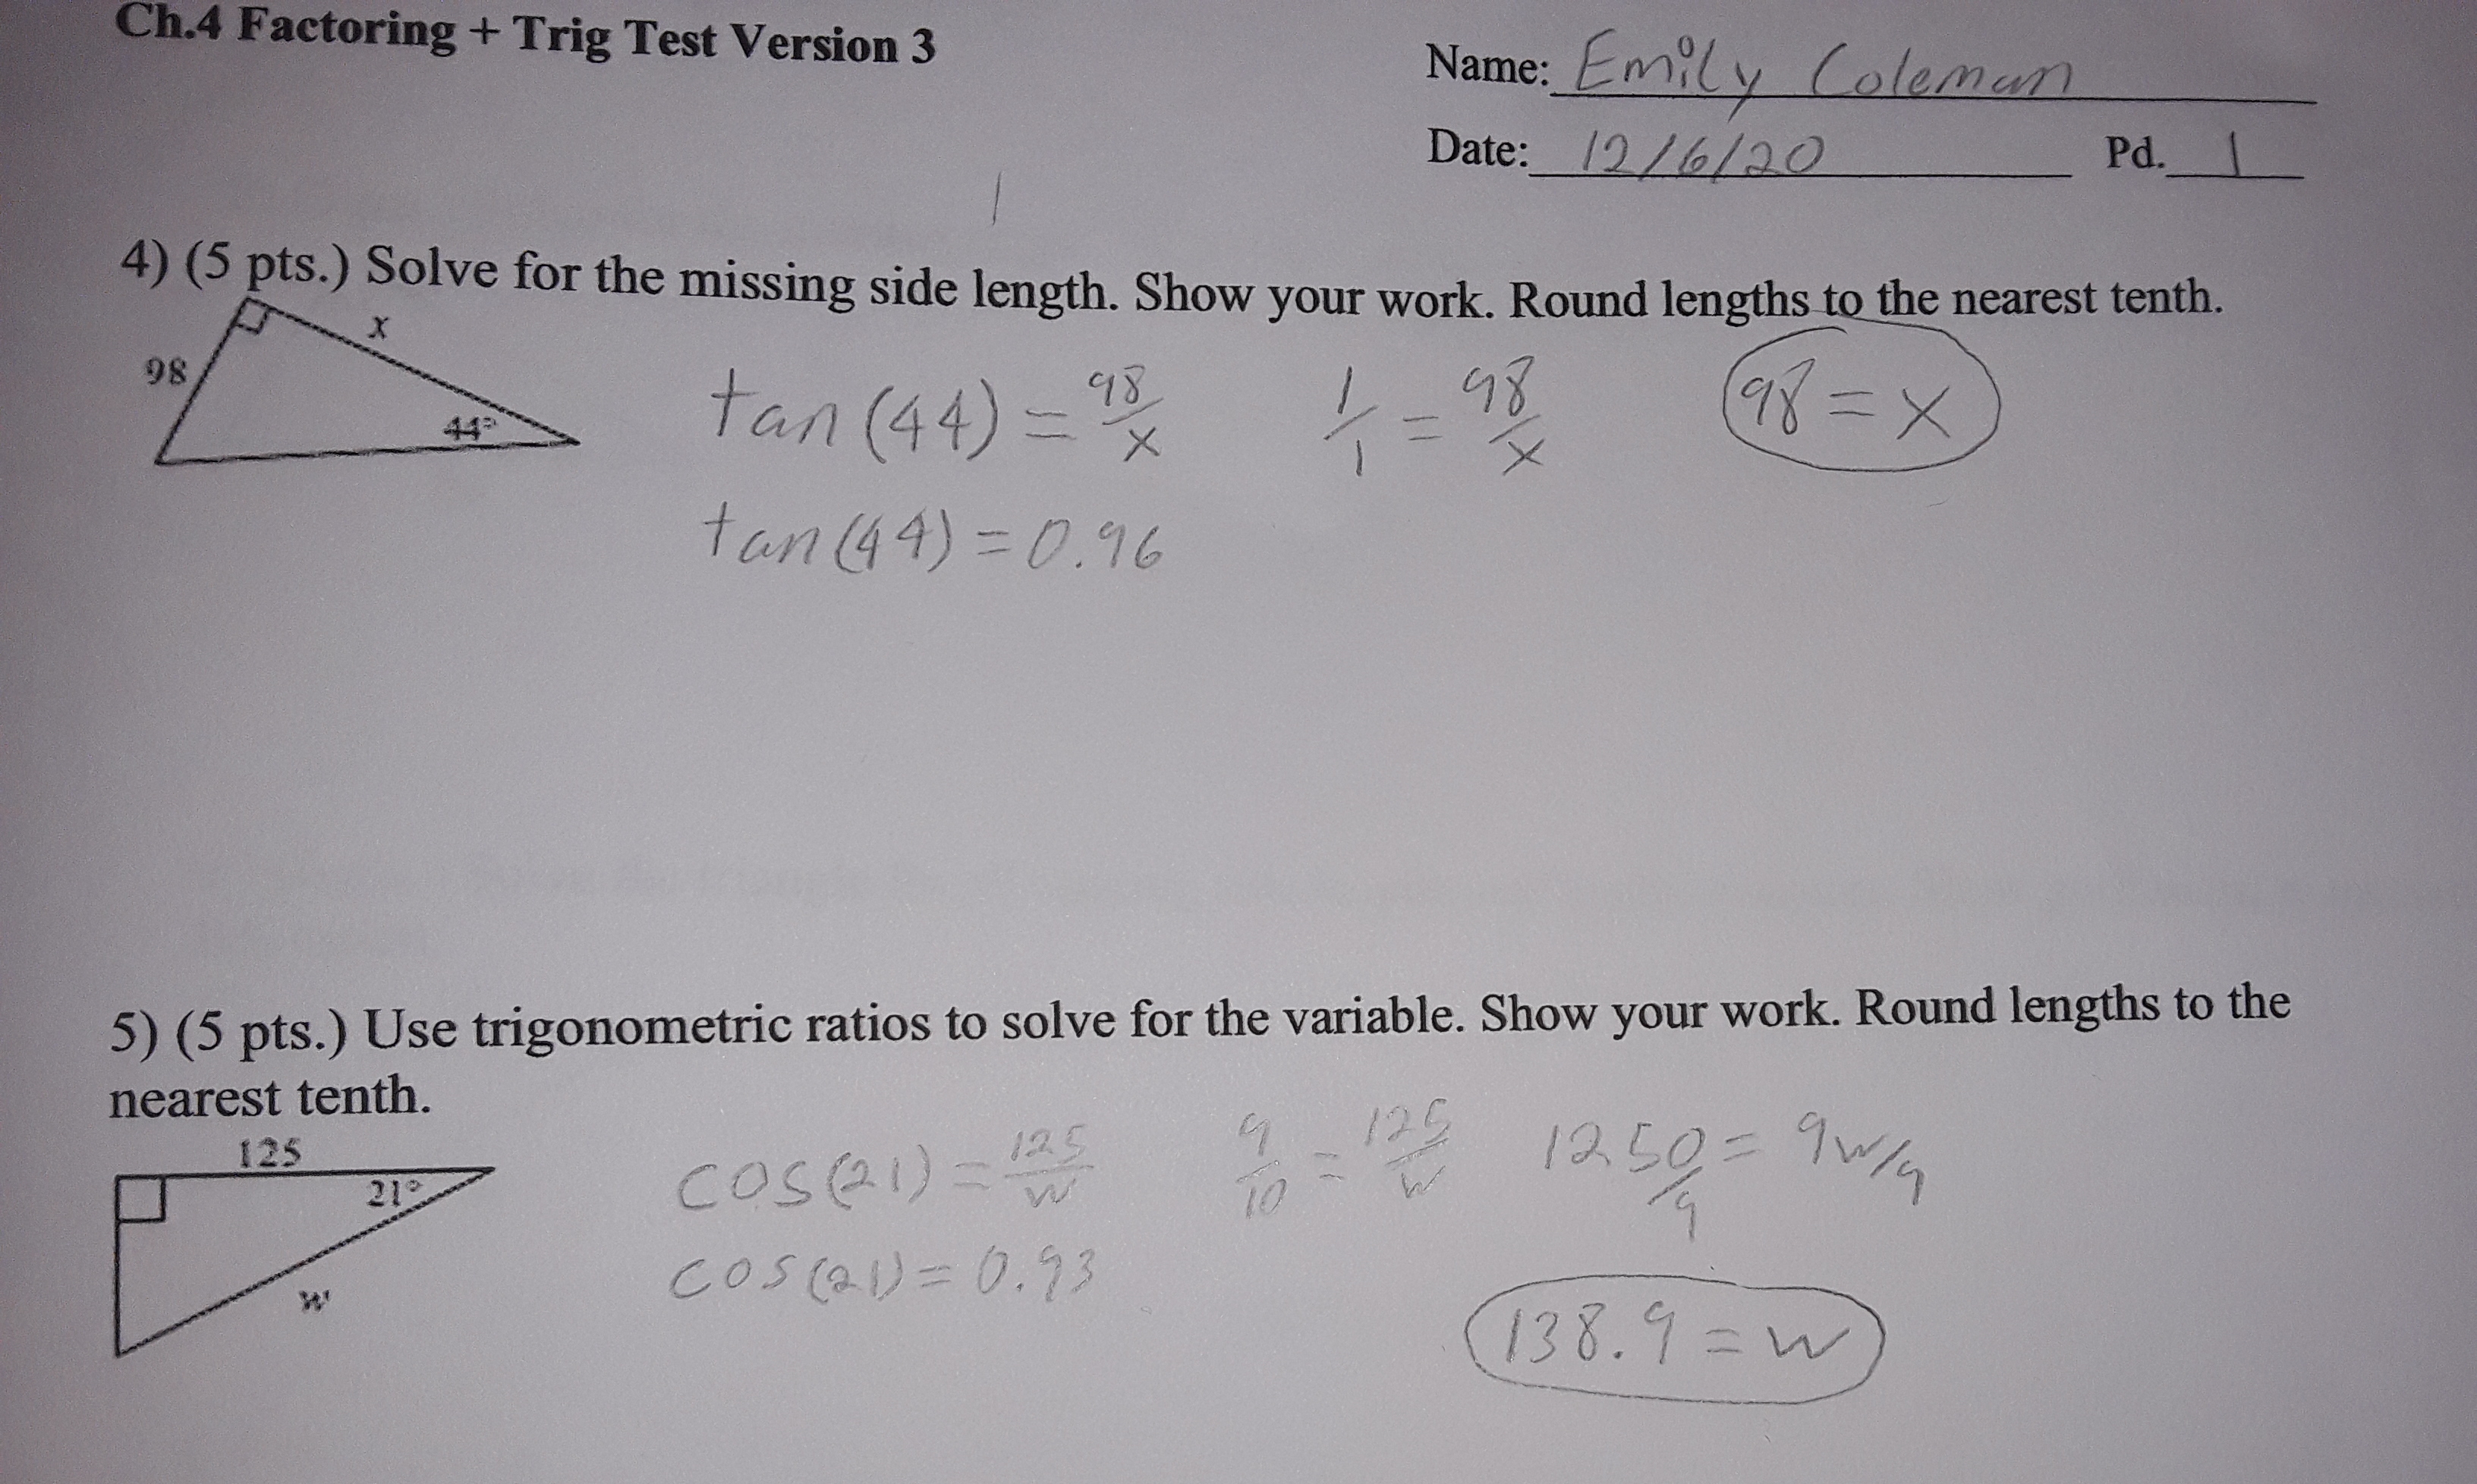 Ch.4 Factoring + Trig Test Version 3
Name: Emily Coleman
Date: 12/6/20 Pd. 1
4) (5 pts.) Solve for the missing side length. Show your work. Round lengths to the nearest tenth.
98 x 44°
tan(44) = 98/x 1/1 = 98/x 98 = x
tan(44) = 0.96
5) (5 pts.) Use trigonometric ratios to solve for the variable. Show your work. Round lengths to the
nearest tenth.
125 21° w
cos(21) = 125/w 9/10 = 125/w 1250/9 = 9w/9
cos(21) = 0.93
138.9 = w